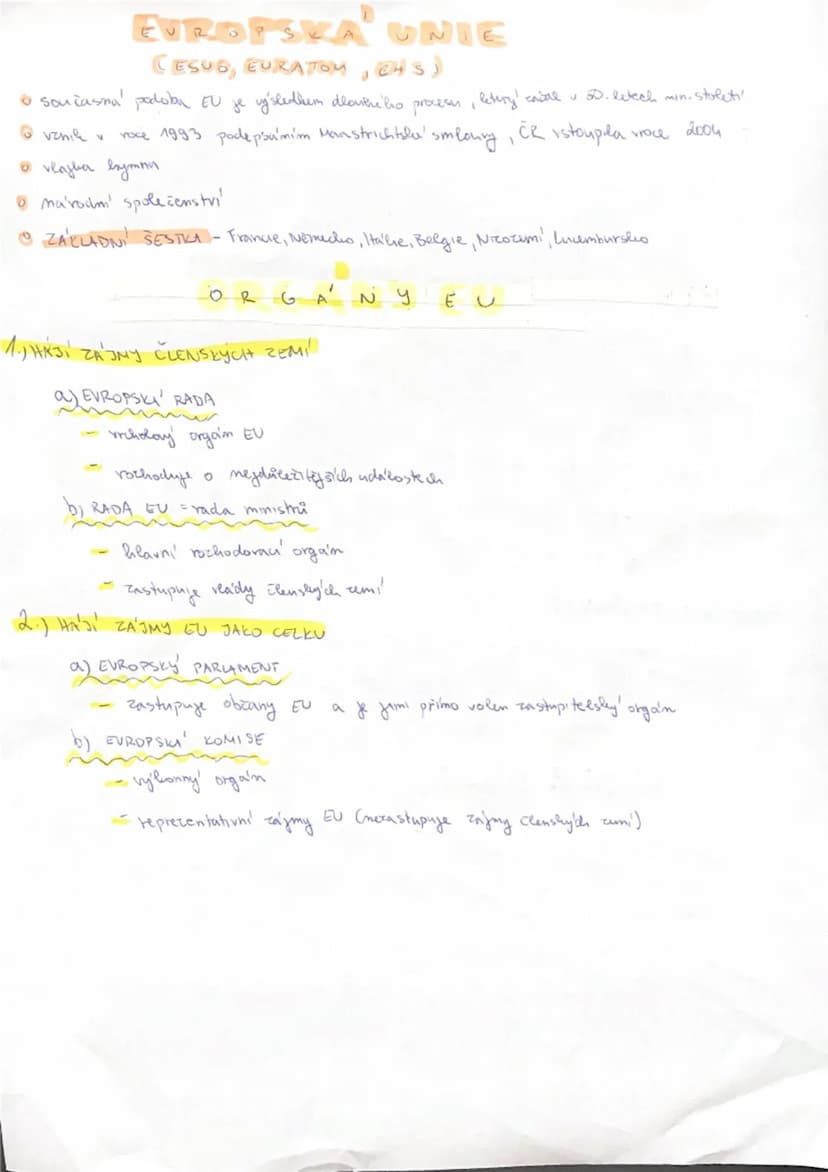 EVROPSKÁ UNIE
(ESUO, EURATOM, EHS)
současná podoba EU je výsledkem dlouhého procesu, který začal v 50. letech min. století
vznik v roce 1993 podepsáním Maastrichtské smlouvy, ČR vstoupila v roce 2004
vlajka hymna
národní společenství
ZÁKLADNÍ ŠESTKA - Francie, Německo, Itálie, Belgie, Nizozemí, Lucembursko
ORGÁNY EU
1.) HÁJÍ ZÁJMY ČLENSKÝCH ZEMÍ
a) EVROPSKÁ RADA
- vrcholový orgán EU
- rozhoduje o nejdůležitějších událostech
b) RADA EU = rada ministrů
- hlavní rozhodovací orgán
- zastupuje vlády členských zemí
2.) HÁJÍ ZÁJMY EU JAKO CELKU
a) EVROPSKÝ PARLAMENT
- zastupuje občany EU a je jimi přímo volen zastupitelský orgán
b) EVROPSKÁ KOMISE
- výkonný orgán
- reprezentativní zájmy EU (nezastupuje zájmy členských zemí)